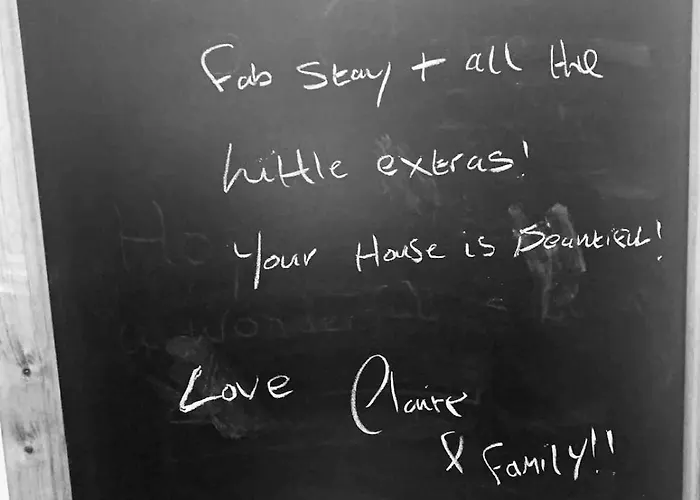 Fab Stay + all the
Little extras!
Your House is Beautiful!
Love Claire
& Family!!